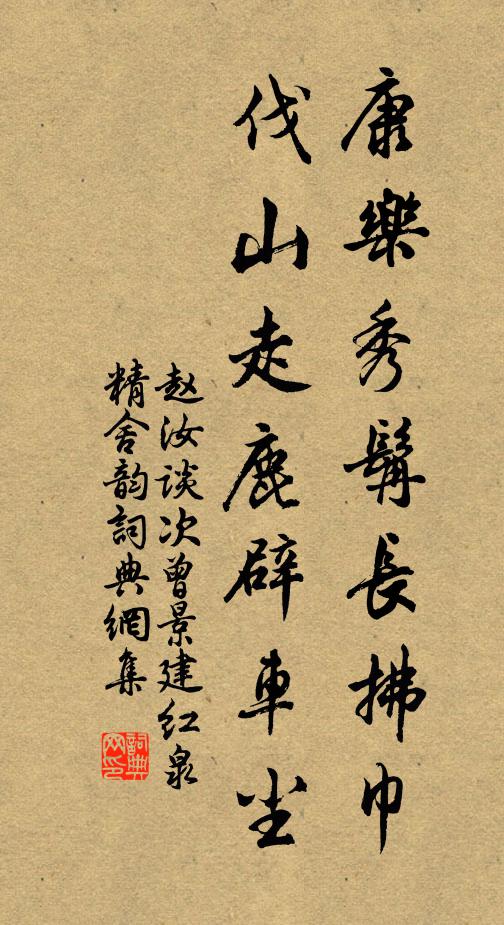 康樂秀髯長拂巾
伐山走鹿辟車尘
赵汝谈次曾景建红泉
精舍韵詞典網集